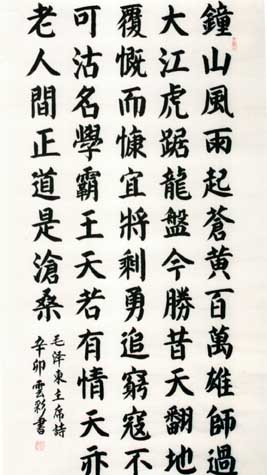 鐘山風雨起蒼黃百萬雄師過
大江虎踞龍盤今勝昔天翻地
覆慨而慷宜將剩勇追窮寇不
可沽名學霸王天若有情天亦
老人間正道是滄桑
毛泽東主席詩
辛卯雲彩書